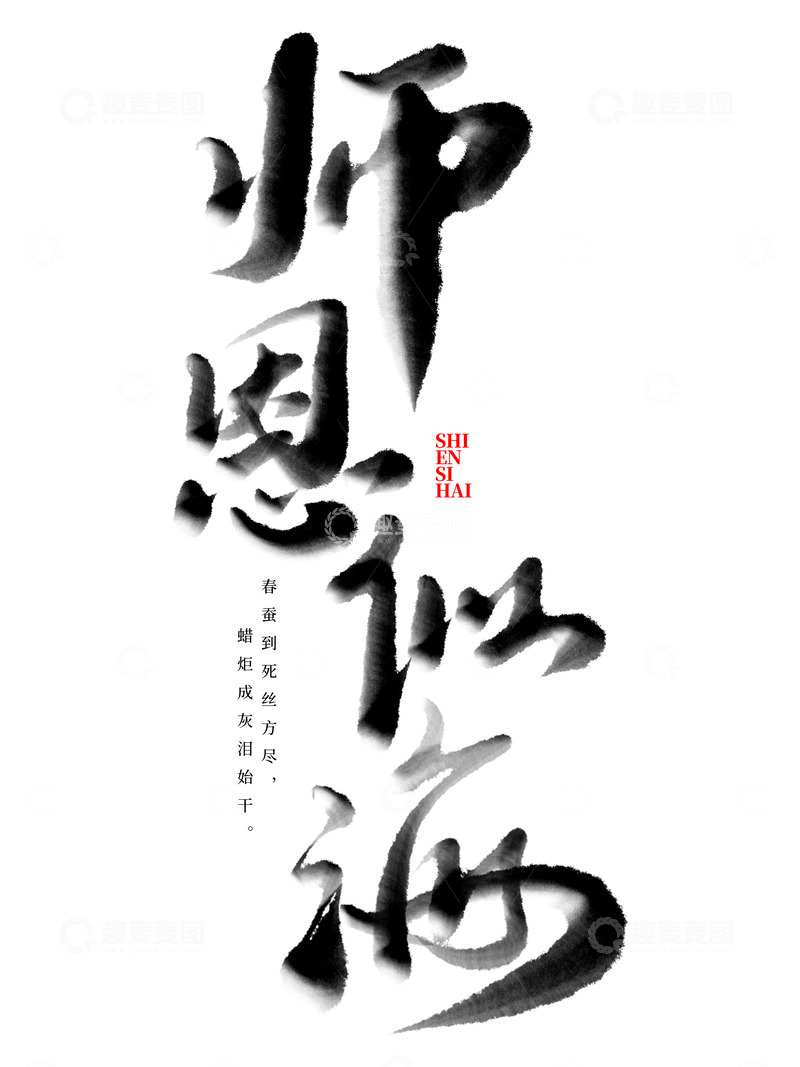 师恩似海
SHI
EN
SI
HAI
春蚕到死丝方尽，
蜡炬成灰泪始干。
趣麦麦图